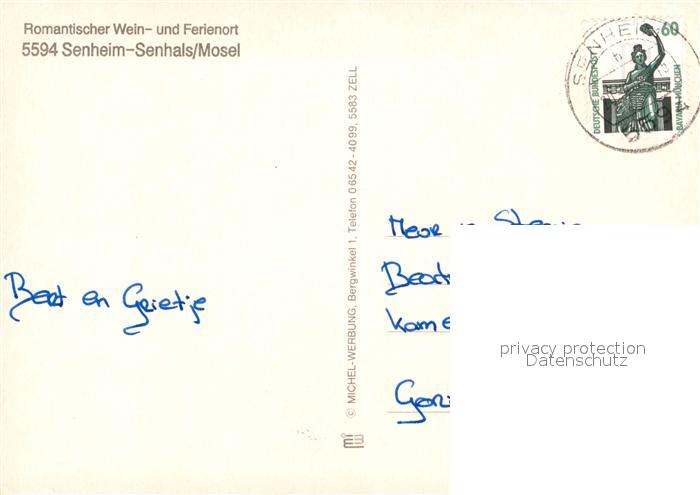 Romantischer Wein- und Ferienort
5594 Senheim-Senhals/Mosel
Bert en Grietje
© MICHEL-WERBUNG, Bergwinkel 1, Telefon 06542-4099, 5583 ZELL
SENHEI
60
DEUTSCHE BUNDESPOST
BAVARIA MÜNCHEN
privacy protection
Datenschutz